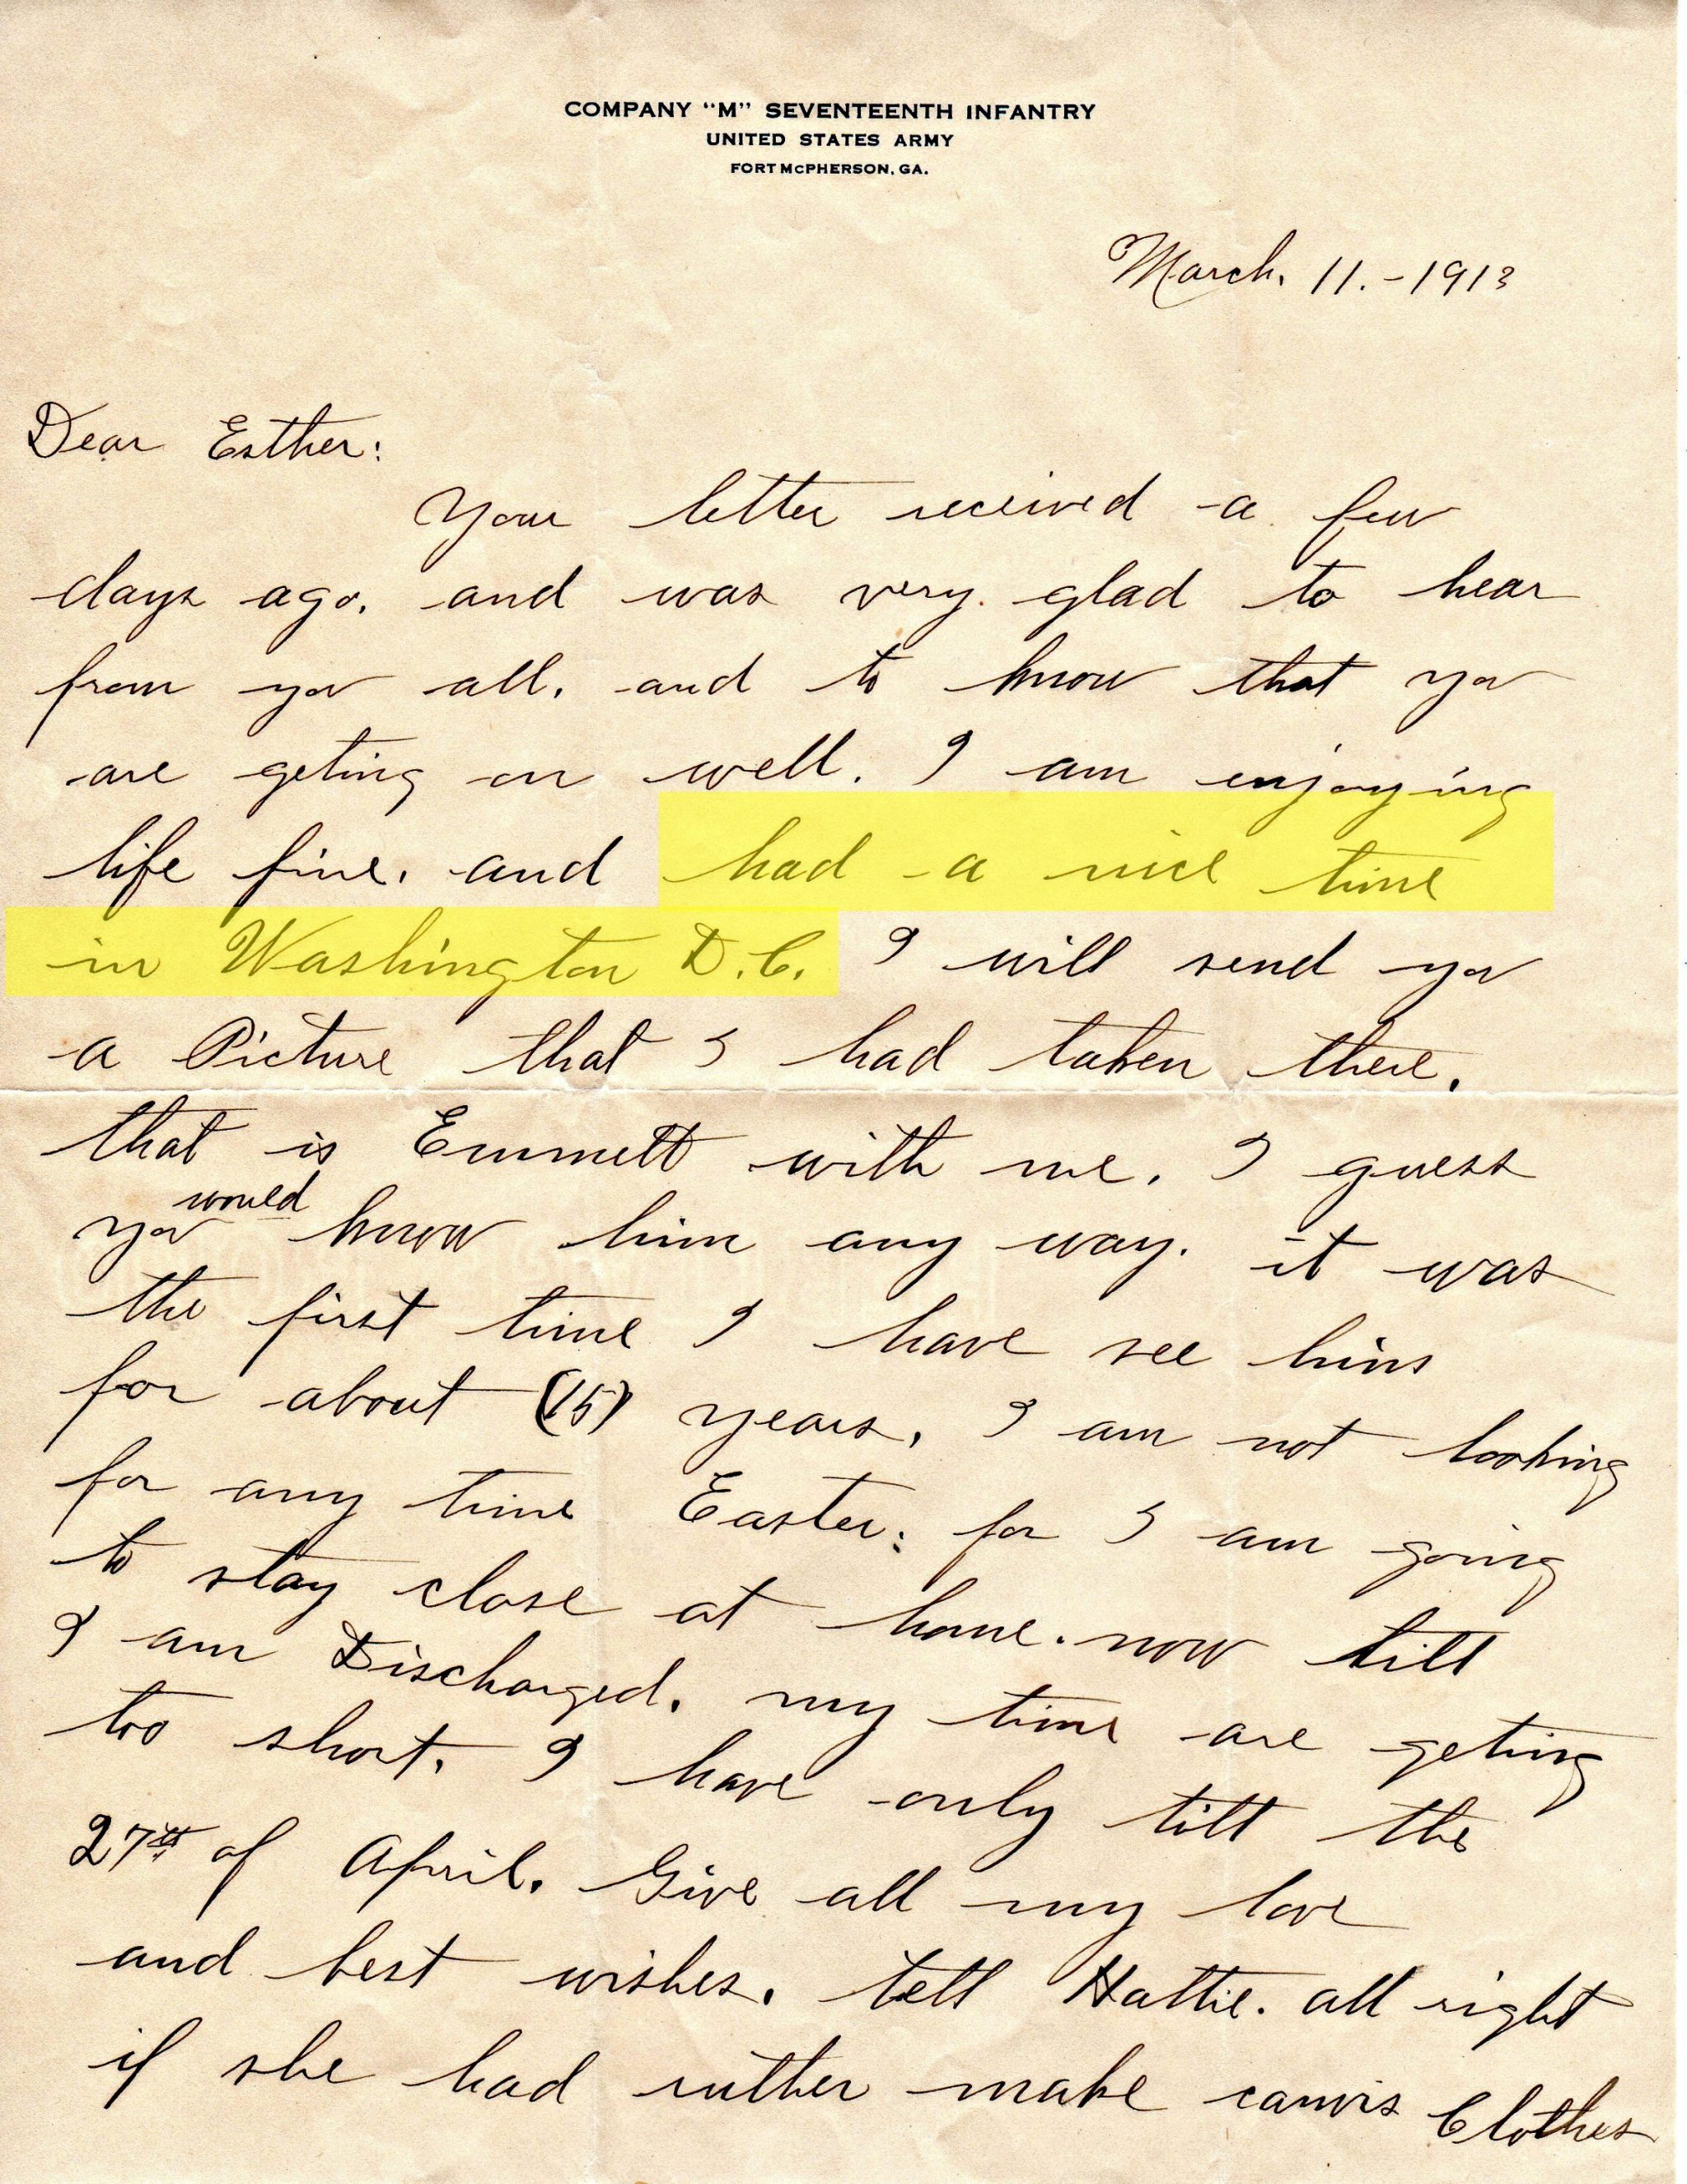 COMPANY “M” SEVENTEENTH INFANTRY
UNITED STATES ARMY
FORT McPHERSON, GA.
March. 11.-1913
Dear Esther:
Your letter received a few
days ago. and was very. glad to hear
from you all. and to know that you
are geting on well. I am enjoying
life fine. and had a nice time
in Washington D.C. I will send you
a Picture that I had taken there.
that is Emmett with me. I guess
would
you know him any way. it was
the first time I have see him
for about (15) years. I am not looking
for any time Easter: for I am going
to stay close at home. now till
I am Discharged. my time are geting
too short. I have only till the
27th of April. Give all my love
and best wishes. tell Hattie. all right
if she had ruther make canvis Clothes